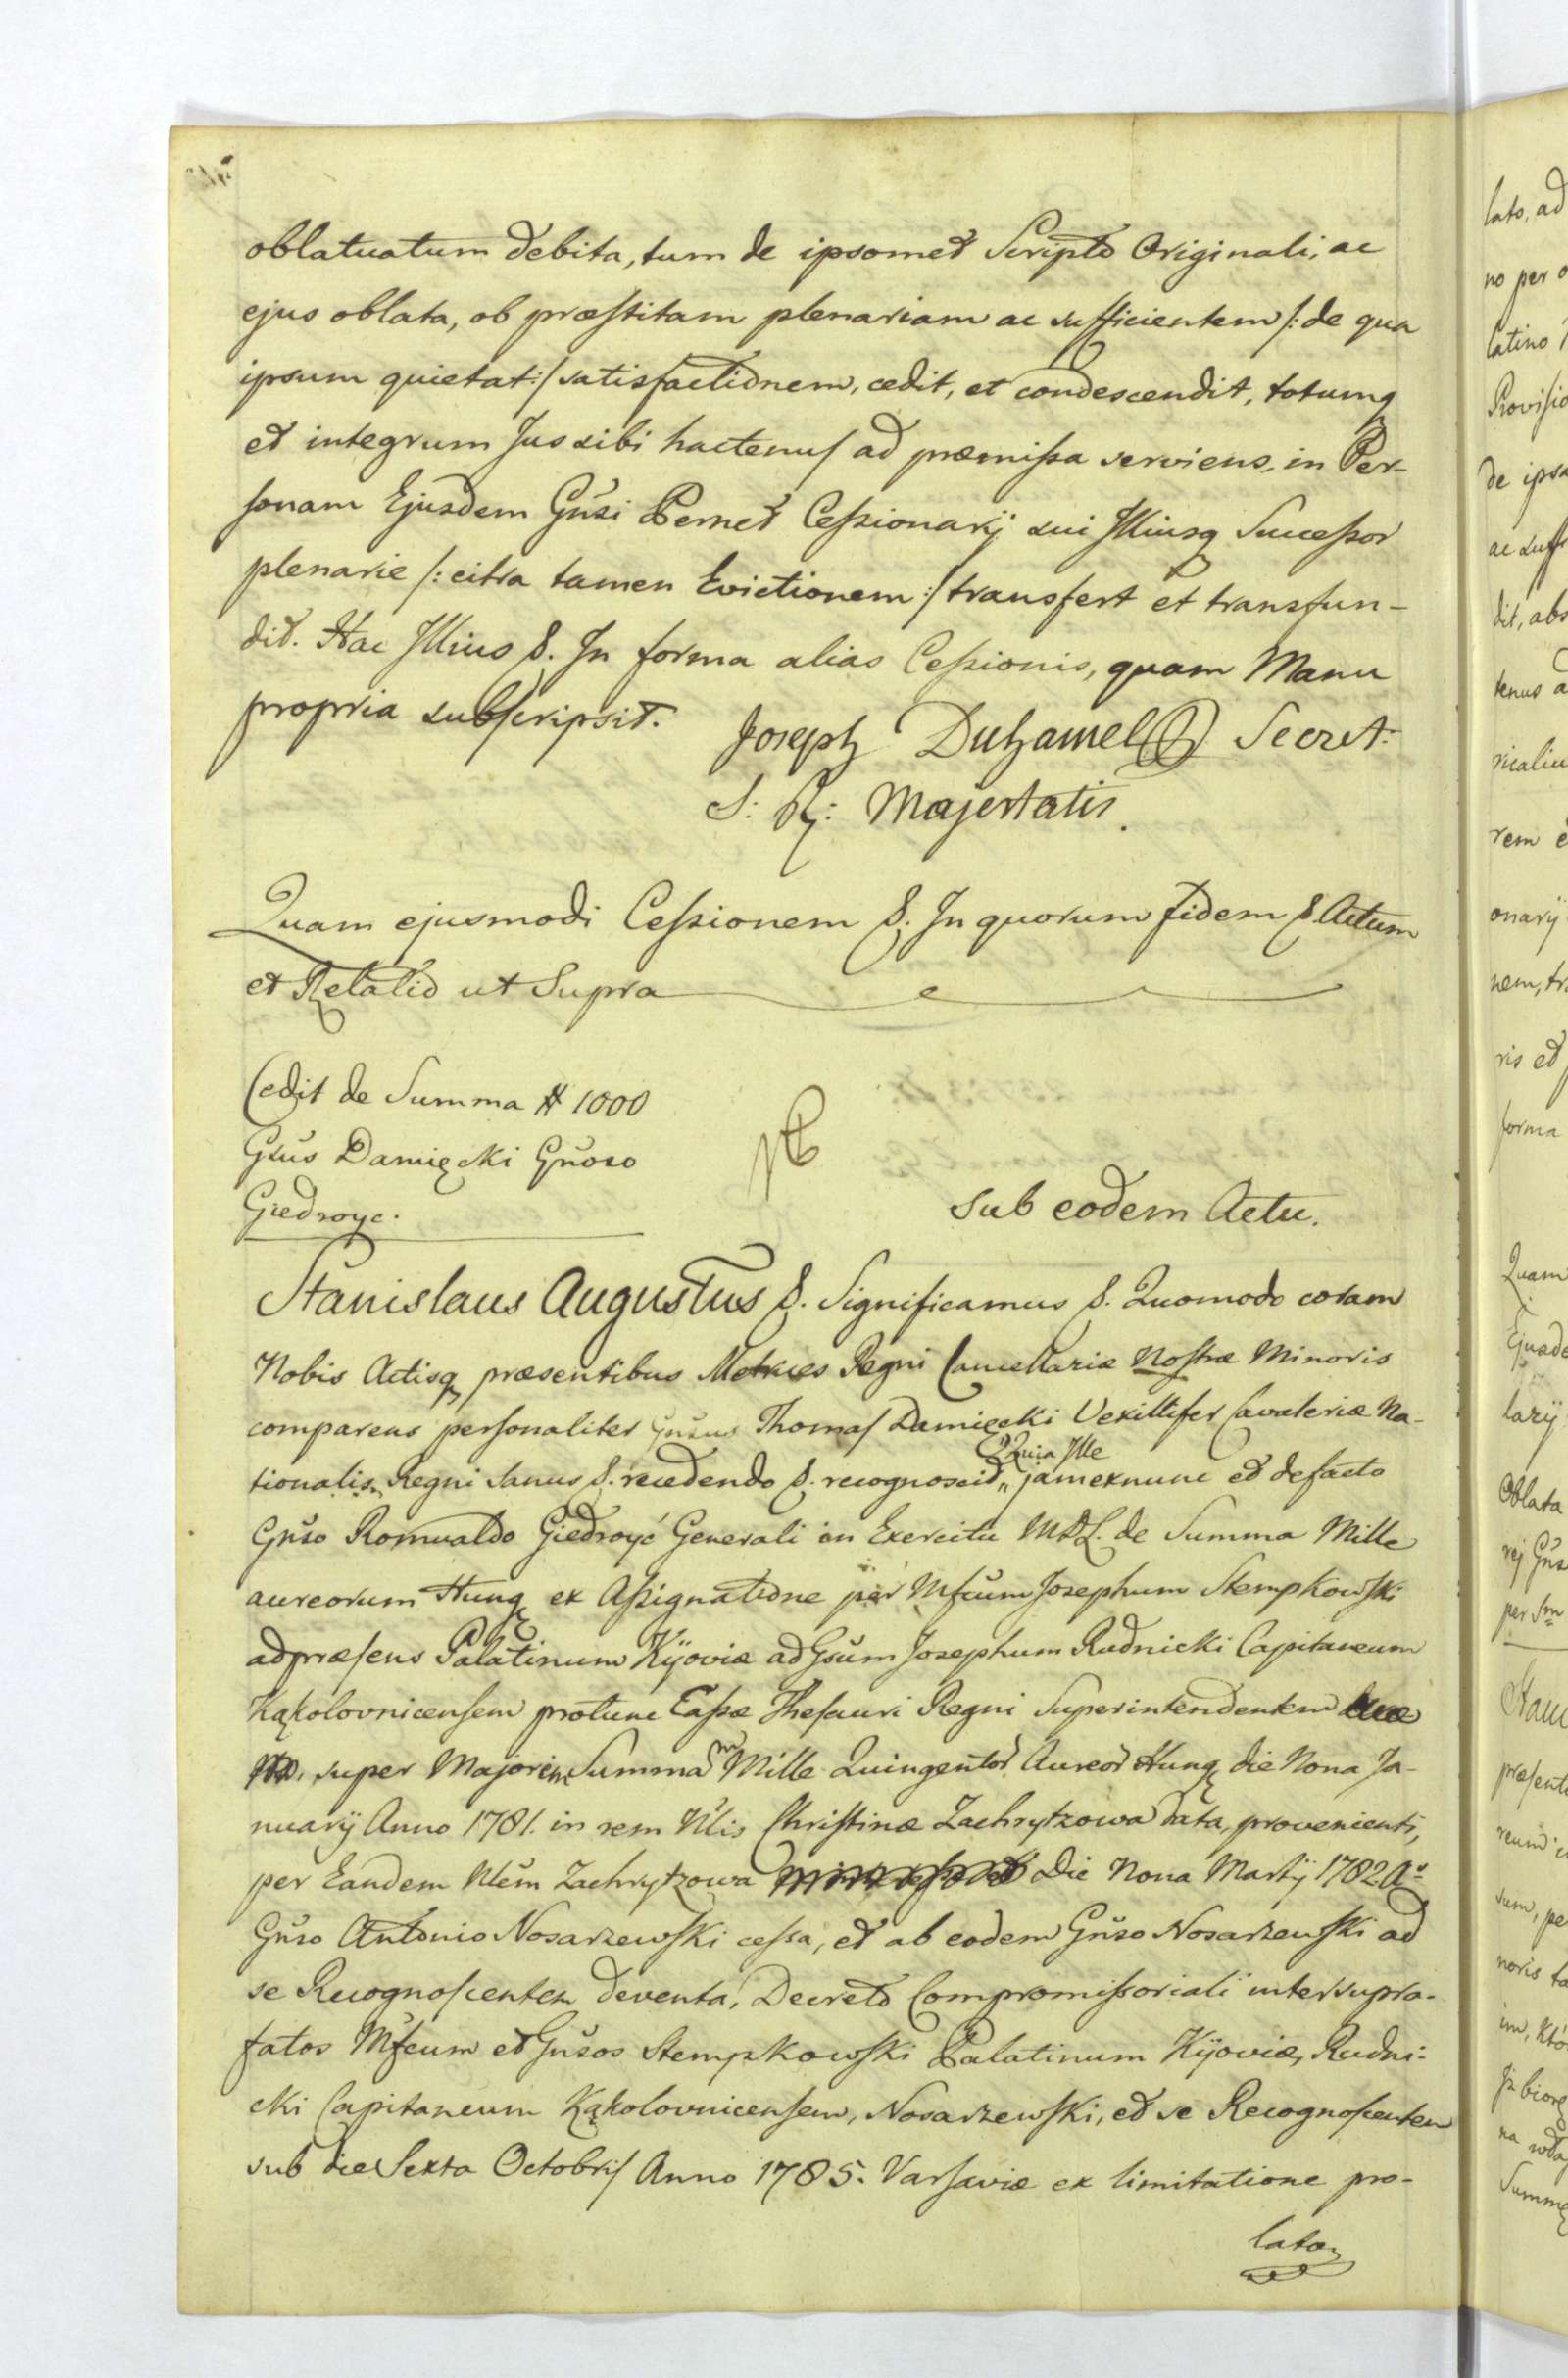 oblatuatum debita, tum de ipsomet Scripto Originali, ac
ejus oblata, ob præstitam plenariam ac sufficientem /: de qua
ipsum quietat :/ satisfactionem, cedit, et condescendit, totumq
et integrum Jus sibi hactenus ad præmissa serviens, in Per-
sonam Ejusdem Gnsi Pernet Cessionarij sui Illiusq Successor
plenarie /: citra tamen Evictionem :/ transfert et transfun-
dit. Hac Illius &. In forma alias Cessionis, quam Manu
propria subscripsit. Joseph Duhamel Secret:
S: R: Majestatis.
Quam ejusmodi Cessionem &. In quorum fidem &. Actum
et Relatio ut Supra
Cedit de Summa # 1000
Gsus Damięcki Gnoso
Giedroyc.
Sub eodem Actu.
Stanislaus Augustus &. Significamus &. Quomodo coram
Nobis Actisq præsentibus Metrices Regni Cancellariæ Nostræ Minoris
comparens personaliter Gnsus Thomas Damięcki Vexillifer Cavaleriæ Na-
tionalis Regni Sanus &. recedendo &. recognoscit, Quia Ille
jamexnunc et defacto
Gnso Romualdo Giedroyć Generali in Exercitu M.D.L. de Summa Mille
aureorum Hung ex Assignatione per Mfcum Josephum Stempkowski
adpræsens Palatinum Kijoviæ ad Gsum Josephum Rudnicki Capitaneum
Kąkolovnicensem protunc Cassæ Thesauri Regni Superintendentem
super Majorem Summam Mille Quingentor Aureor Hung die Nona Ja-
nuarij Anno 1781. in rem Nlis Christinæ Zachrytzowa data, provenienti,
per Eandem Nlem Zachrytzowa Die Nona Martij 1782 Ao
Gnso Antonio Nosarzewski cessa, et ab eodem Gnso Nosarzewski ad
se Recognoscentem deventa, Decreto Compromissoriali inter supra-
fatos Mfcum et Gnsos Stempkowski Palatinum Kijoviæ, Rudni-
cki Capitaneum Kąkolovnicensem, Nosarzewski, et se Recognoscentem
sub die Sexta Octobris Anno 1785. Varsaviæ ex limitatione pro-
lato